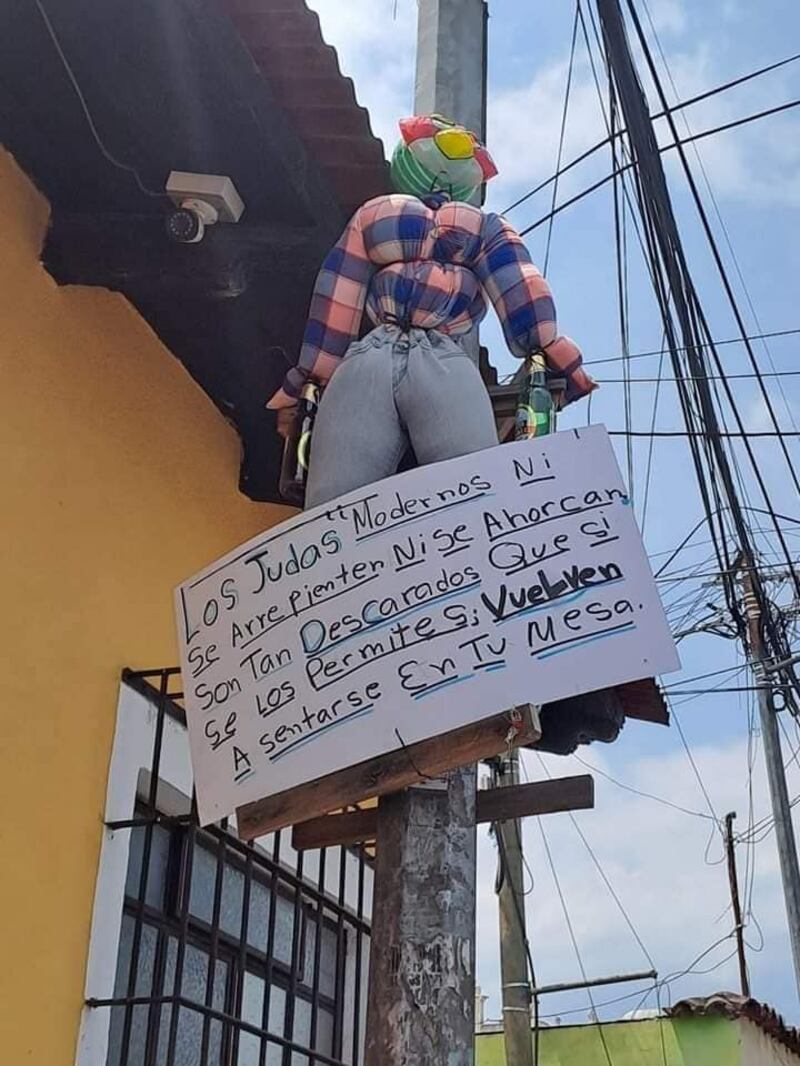 Los Judas "Modernos Ni
Se Arrepienten Ni Se Ahorcan
Son Tan Descarados Que si
se Los Permites; Vuelven
A sentarse En Tu Mesa.